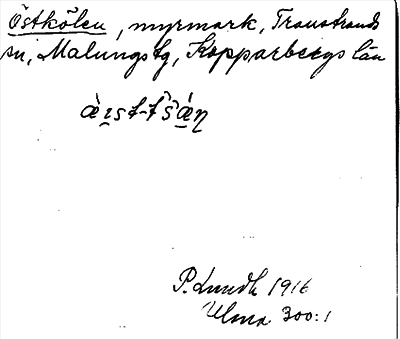 Östkölen, myrmark, Transtrands
sn, Malungs tg, Kopparbergs län
P. Lundh 1916
Ulma 300:1